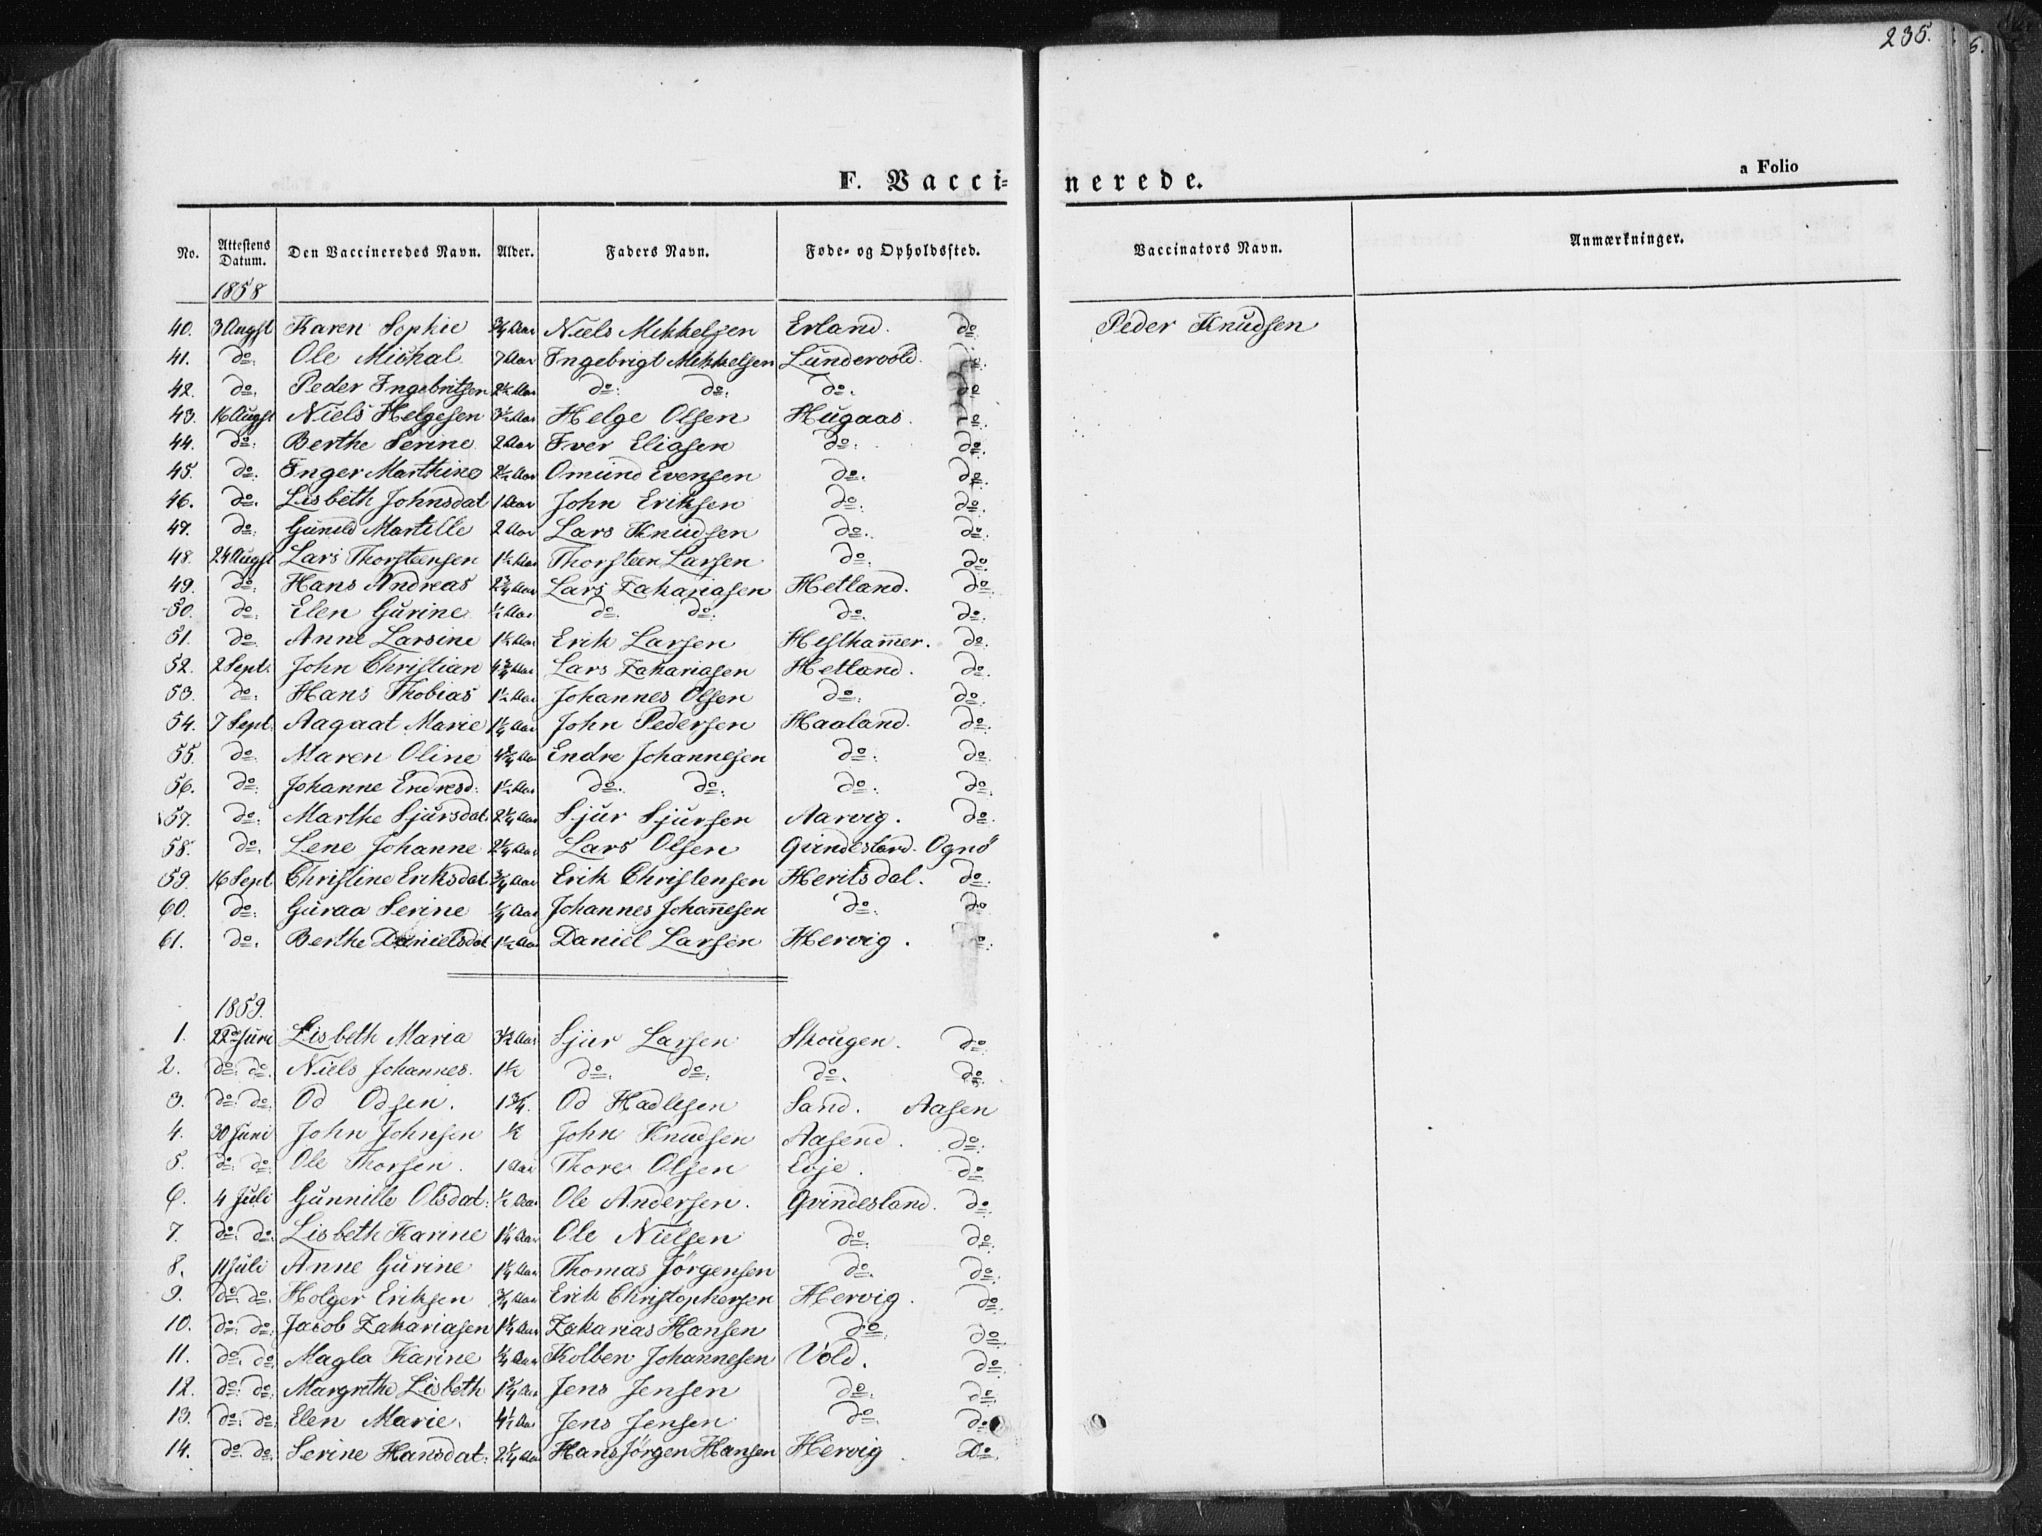 235.
F. Vaccinerede.
a Folio
No. Attestens Datum. Den Vaccineredes Navn. Alder. Faders Navn. Føde- og Opholdssted. Vaccinators Navn. Anmærkninger.
1858
40. 3 Augst Karen Sophie 3/4 Aar Niels Mikkelsen Erland. do Peder Knudsen
41. do: Ole Michal 7 Aar Ingebrigt Mikkelsen Lundervold. do.
42. do: Peder Ingebritsen 2½ Aar do: do: do. do
43. 16 Augst Niels Helgesen 3½ Aar Helge Olsen Hugaas. do.
44. do: Berthe Serine 2 Aar Iver Eliasen do: do.
45. do: Inger Marthine 2½ Aar Omund Evensen do. do.
46. do. Lisbeth Johnsdat 1 Aar John Eriksen do: do.
47. do: Guneld Martille 2 Aar Lars Knudsen do. do.
48. 24 Augst Lars Thorsteensen 1½ Aar Thorsteen Larsen do: do.
49. do: Hans Andreas 2¾ Aar Lars Zakariasen Hetland. do.
50. do: Elen Gurine ½ Aar do: do: do. do:
51. do Anne Larsine 1½ Aar Erik Larsen Heslham̅er. do.
52. 2 Sept: John Christian 4¾ Aar Lars Zakariasen Hetland. do.
53. do: Hans Thobias 1½ Aar Johannes Olsen do: do:
54. 7 Sept: Aagaat Marie 1¼ Aar John Pedersen Haaland. do:
55. do: Maren Oline 4¾ Aar Endre Johannesen do: do.
56. do: Johanne Endresd: 1½ Aar do. do: do: do.
57. do: Marthe Sjursdat. 2¼ Aar Sjur Sjursen Aarvig. do.
58. do. Lene Johanne 2¼ Aar Lars Olsen Qvindesland. Ognö
59. 16 Sept Christine Eriksdat. ¾ Aar Erik Christensen Heritsdal. do.
60. do: Guraa Serine Aar Johannes Johan̅esen do: do
61. do. Berthe Danielsdat 1½ Aar Daniel Larsen Hervig. do.
1859.
1. 22de Juni Lisbeth Maria 3½ Aar Sjur Larsen Skougen. do:
2. do: do: Niels Johannes. 1½ do: do: do. do:
3. do: do: Od Odsen. 1¾. Od Hadlesen Sand. Aasen
4. 30 Juni John Johnsen ½ John Knudsen Aasend. do:
5. do: do: Ole Thorsen. 1 Aar Thore Olsen Evje. do
6. 4 Juli Gunnille Olsdat: ½ Aar Ole Andersen. Qvindesland. do:
7. do: do: Lisbeth Karine 1¼ Aar Ole Nielsen do: do:
8. 11 Juli Anne Gurine 1¼ Aar Thomas Jörgensen do. do:
9. do: do: Holger Eriksen ¾ Aar Erik Christophersen Hervig. do.
10. do: do: Jacob Zakariasen 1¼ Aar Zakarias Hansen do. do.
11. do. do: Magla Karine Aar Kolben Johannesen Vold. do.
12. do: do: Margrethe Lisbeth 1¾ Aar Jens Jensen do. do:
13. do: do: Elen Marie. 4½ Aar Jens Jensen do. do:
14. do. do: Serine Hansdat: 2¼ Aar Hans Jörgen Hansen Hervig. Do.